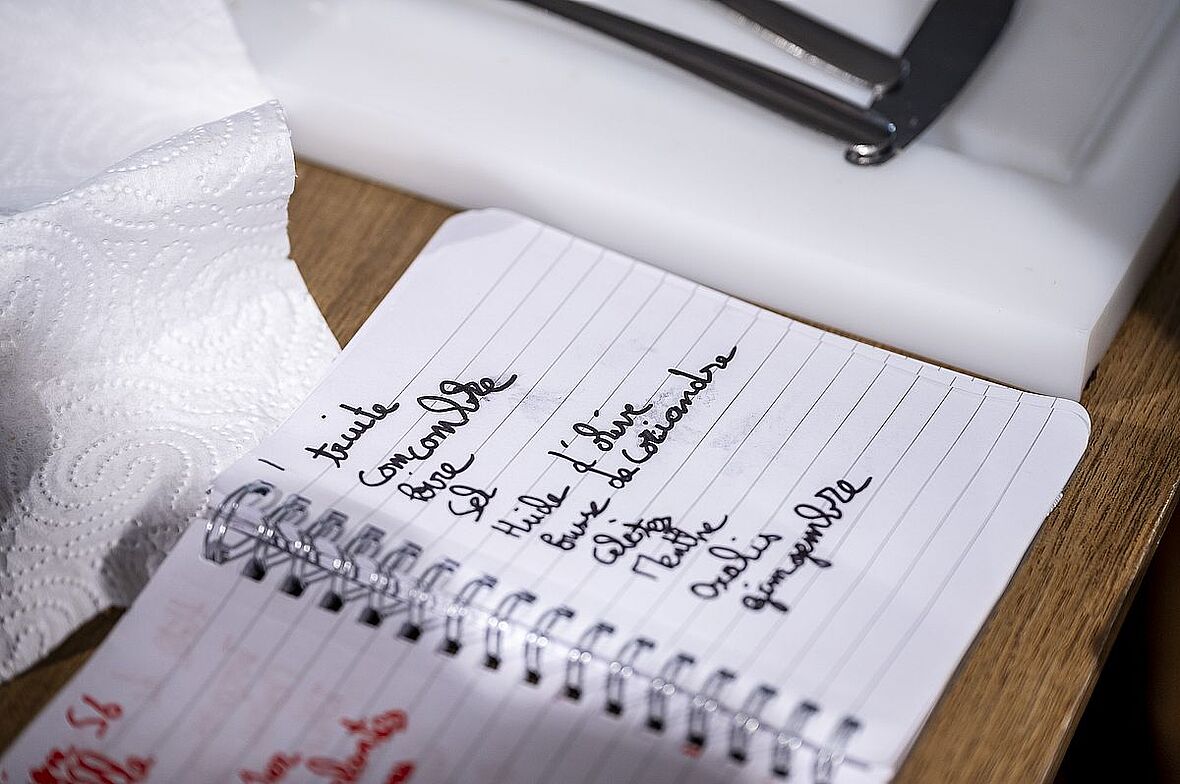 1 truite
Comcombre
Poivre
Sel
Huile d'olive
Pousse de coriandre
Menthe
Oxalis
gimgembre
56